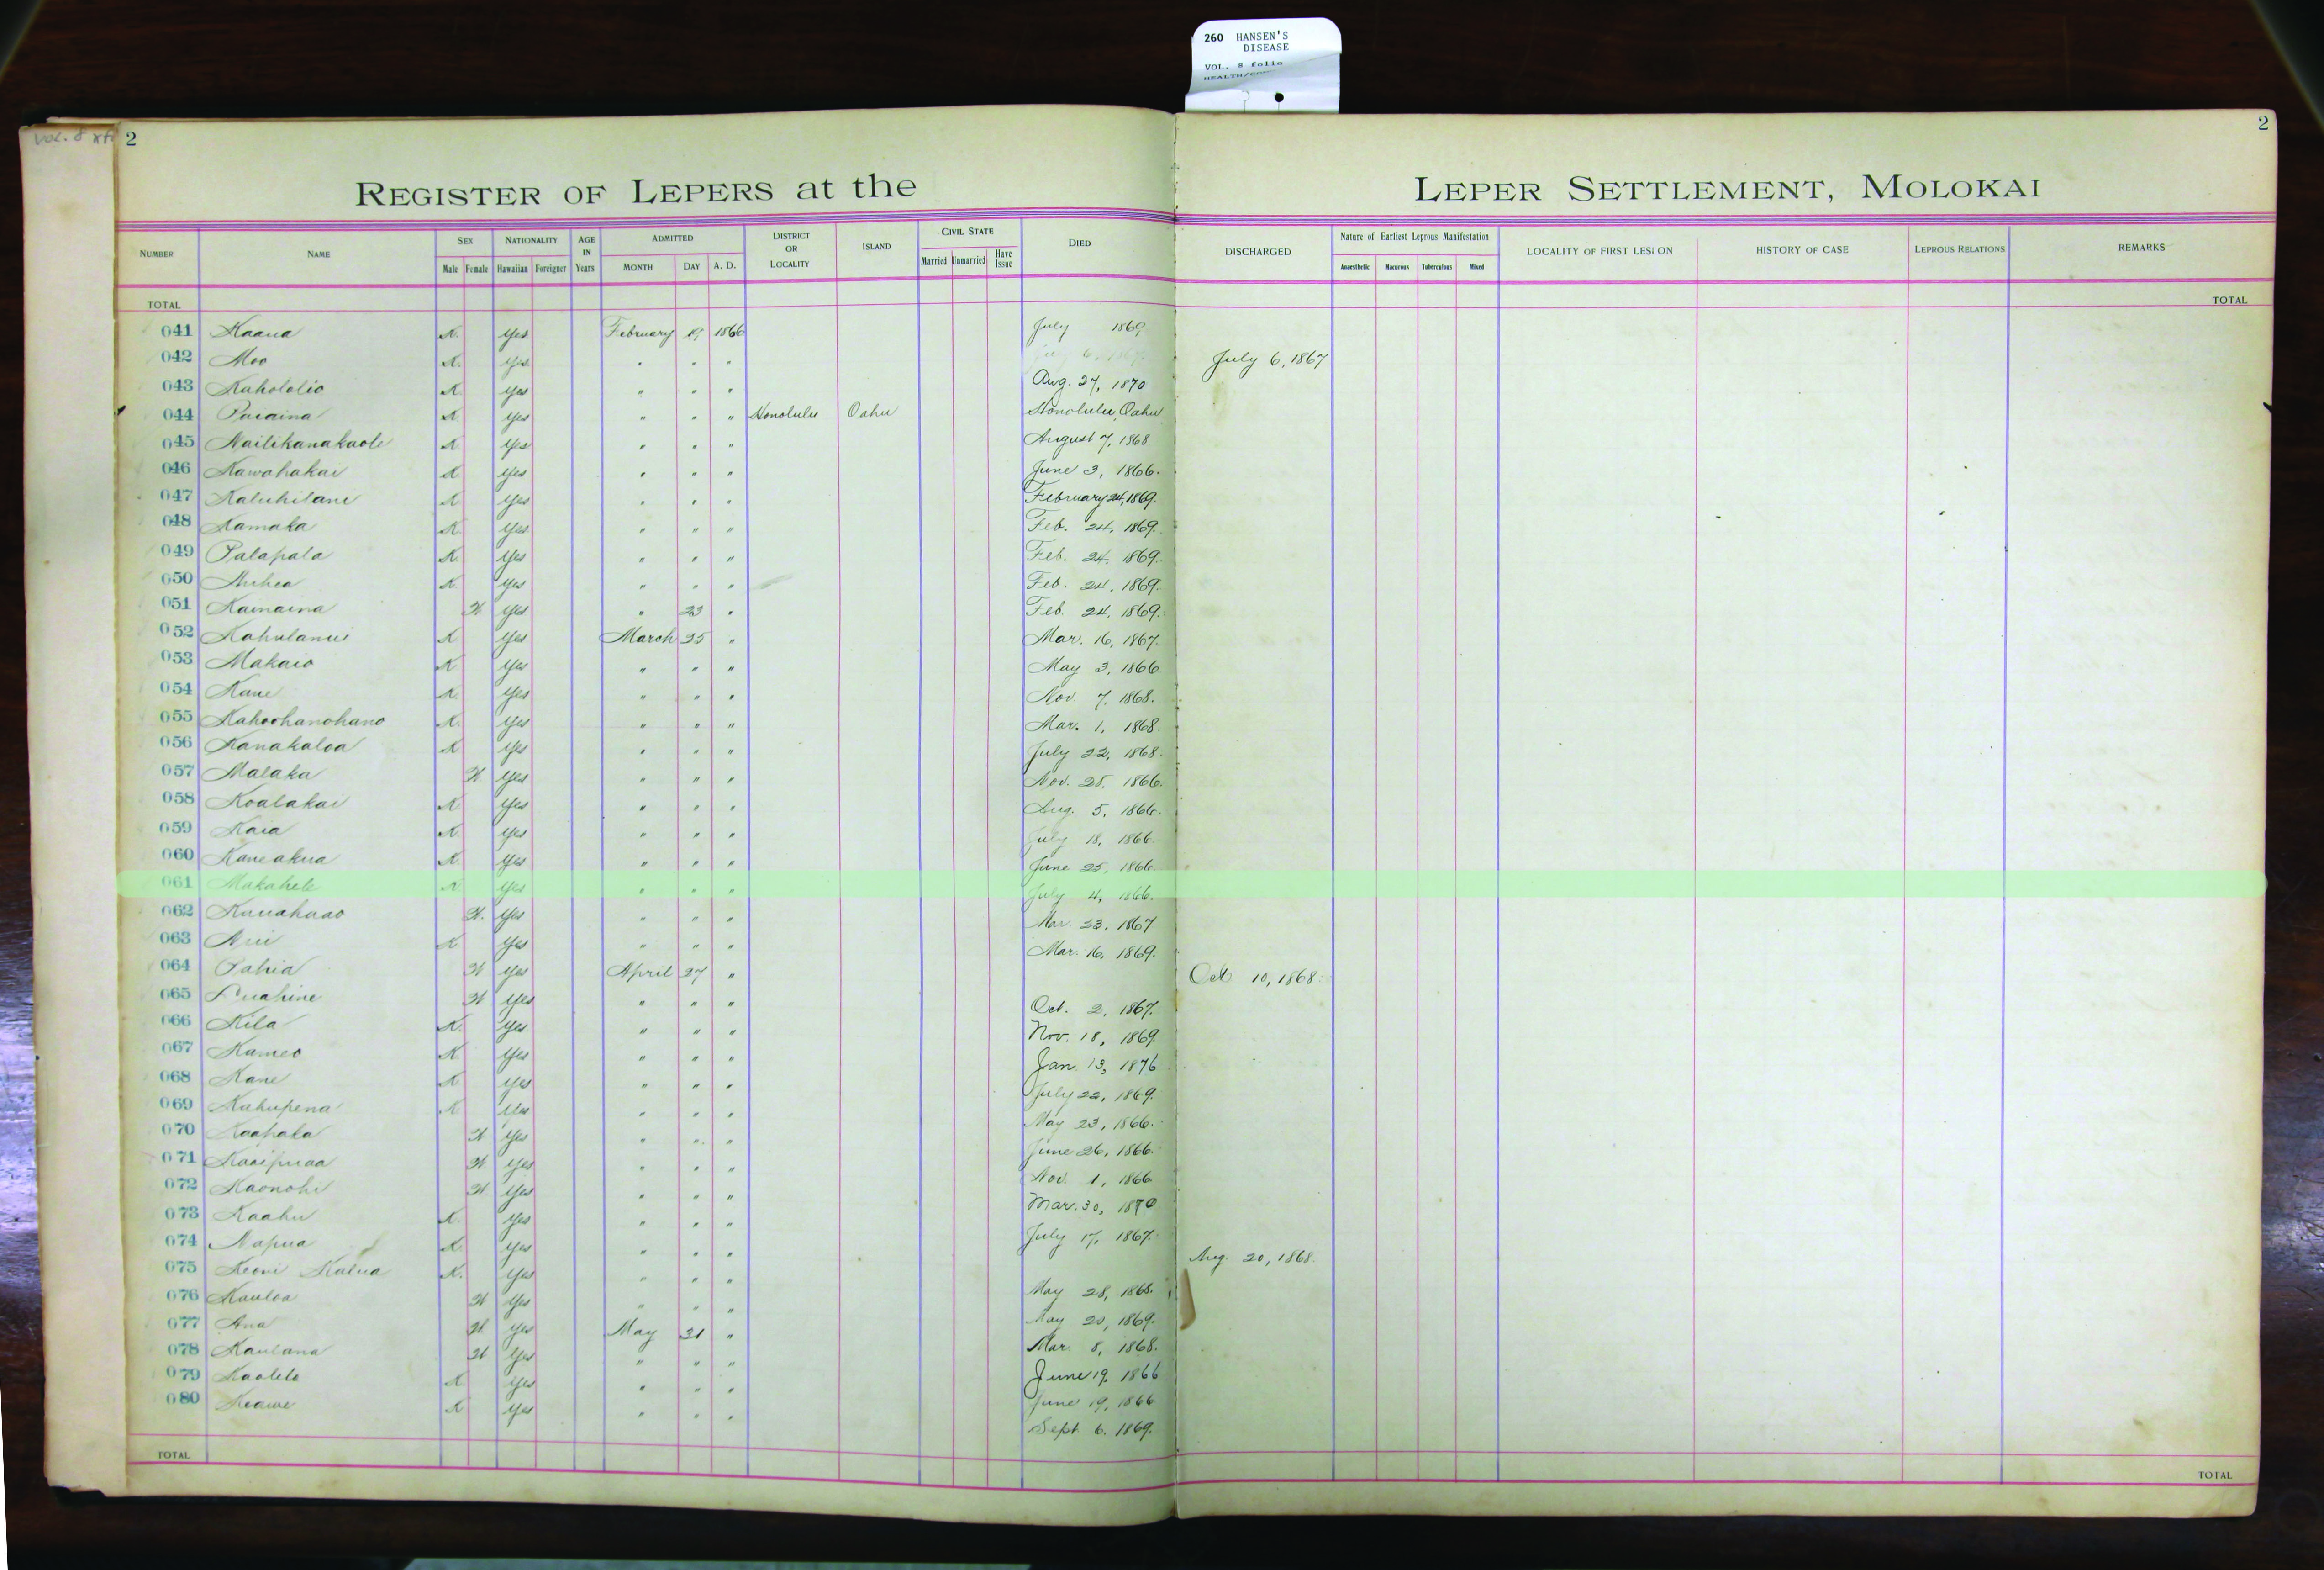 260 HANSEN'S
DISEASE
VOL. 8 folio
Vol. 8
2
2
REGISTER OF LEPERS at the LEPER SETTLEMENT, MOLOKAI
NUMBER NAME SEX NATIONALITY AGE IN Years ADMITTED DISTRICT OR LOCALITY ISLAND CIVIL STATE DIED DISCHARGED Nature of Earliest Leprous Manifestation LOCALITY OF FIRST LESION HISTORY OF CASE LEPROUS RELATIONS REMARKS
Male Female Hawaiian Foreigner MONTH DAY A. D. Married Unmarried Have Issue Anaesthetic Macurous Tuberculous Mixed
TOTAL TOTAL
041 Kaaua K. Yes February 19 1866 July 1869
042 Moo K. Yes " " " July 6, 1867
043 Kahololio K. Yes " " " Aug. 27, 1870
044 K. Yes " " " Honolulu Oahu Honolulu, Oahu
045 Nailikanakaole K Yes " " " August 7, 1868
046 Kawahakai K Yes " " " June 3, 1866.
047 Kaluhilani K Yes " " " February 24, 1869.
048 Kamaka K Yes " " " Feb. 24, 1869.
049 Palapala K. Yes " " " Feb. 24, 1869.
050 Auhea K. Yes " " " Feb. 24, 1869.
051 Kamaina W. Yes " 23 " Feb. 24, 1869.
052 K Yes March 25 " Mar. 16, 1867.
053 Makaio K Yes " " " May 3, 1866
054 Kane K. Yes " " " Nov. 7, 1868.
055 Kahoohanohano K. Yes " " " Mar. 1, 1868.
056 Kanakaloa K Yes " " " July 22, 1868.
057 Malaka W Yes " " " Nov. 28, 1866.
058 Koalakai K Yes " " " Aug. 5, 1866.
059 Kaia K. Yes " " " July 18, 1866
060 Kaneakua K. Yes " " " June 25, 1866.
061 Makahele K. Yes " " " July 4, 1866.
062 Kauahaao W. Yes " " " Mar. 23, 1867
063 K Yes " " " Mar. 16, 1869.
064 Pahia W Yes April 27 " Oct 10, 1868.
065 Luahine W Yes " " " Oct. 2, 1867.
066 Kila K. Yes " " " Nov. 18, 1869.
067 Kameo K Yes " " " Jan 13, 1876
068 Kane K Yes " " " July 22, 1869.
069 Kahupena K Yes " " " May 23, 1866.
070 Kaahala W Yes " " " June 26, 1866.
071 Kaaipuaa W. Yes " " " Nov. 1, 1866
072 Kaonohi W Yes " " " Mar. 30, 1870
073 Kaahu K. Yes " " " July 17, 1867.
074 Napua K. Yes " " " Aug. 20, 1868.
075 Keoni Kalua K. Yes " " " May 28, 1868.
076 Kauloa W Yes " " " May 20, 1869.
077 Ana W. Yes May 31 " Mar. 8, 1868.
078 Kaulana W Yes " " " June 19, 1866
079 Kaolelo K. Yes " " " June 19, 1866
080 Keawe K Yes " " " Sept. 6, 1869.
TOTAL TOTAL